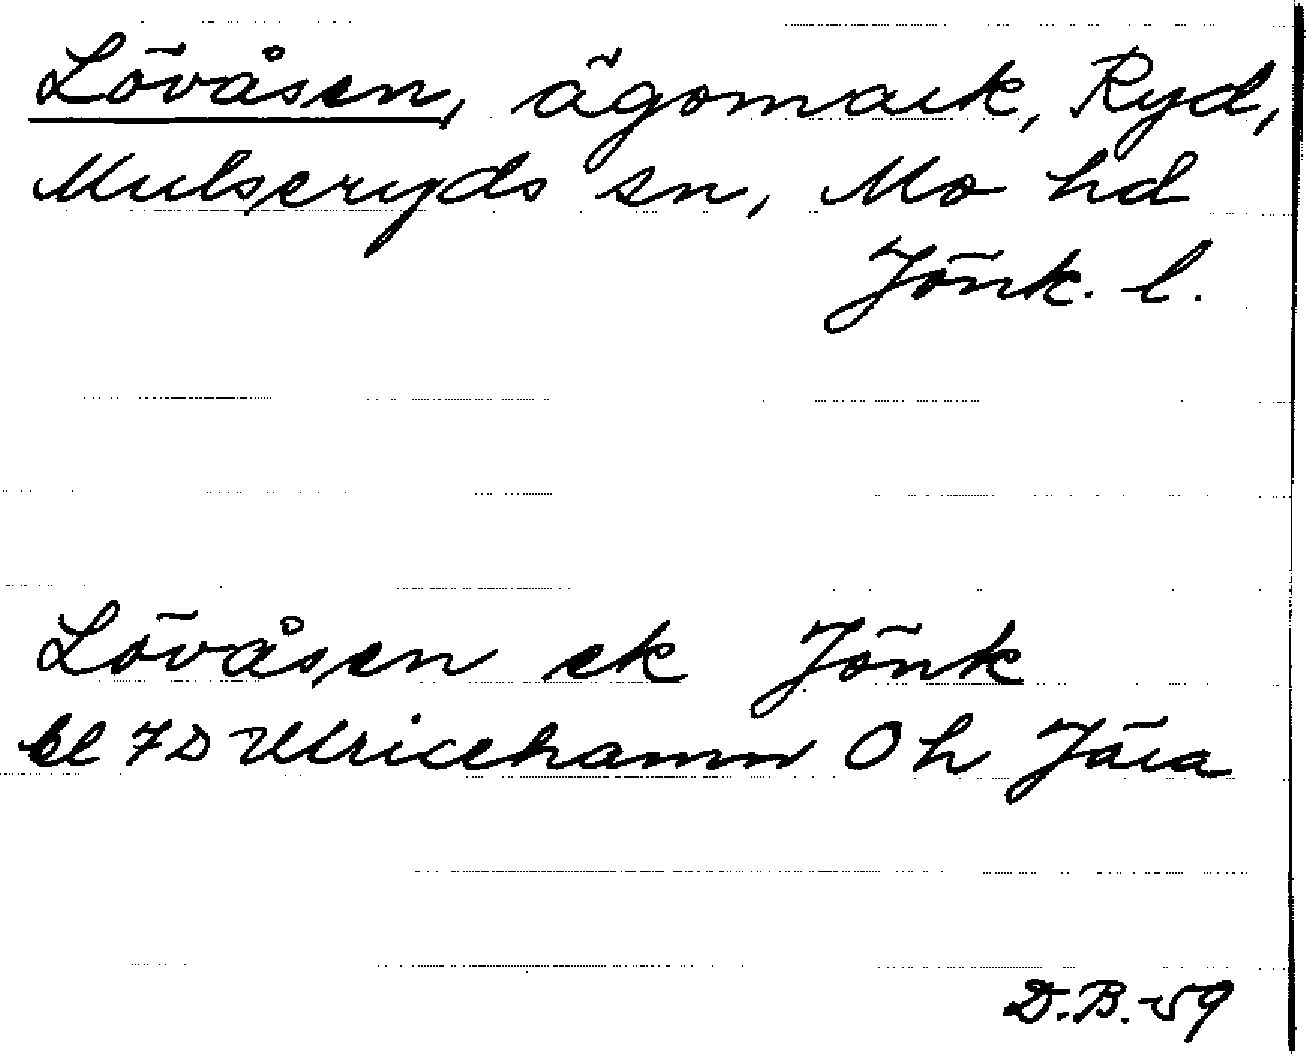 Lövåsen, ägomark, Ryd,
Mulseryds sn, Mo hd
Jönk. l.
Lövåsen ek Jönk
bl 7D Ulricehamn Ö h Jära
D.B.-59